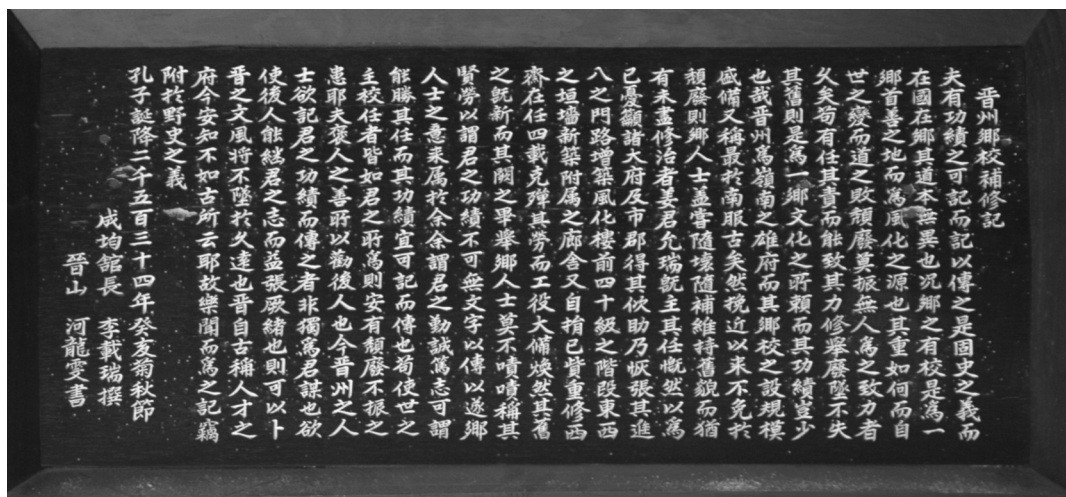 晉州鄕校補修記
夫有功績之可記而記以傳之是固史之義而
在國在鄕其道本無異也況鄕之有校是爲一
鄕首善之地而爲風化之源也其重如何而自
世之變而道之敗頹廢莫振無人爲之致力者
久矣苟有任其責而能致其力修擧廢墜不失
其舊則是爲一鄕文化之所賴而其功績豈少
也哉晉州爲嶺南之雄府而其鄕校之設規模
咸備又稱最於南服古矣然挽近以來不免於
頹廢則鄕人士盖嘗隨壞隨補維持舊貌而猶
有未盡修治者姜君允瑞旣主其任慨然以爲
已憂籲諸大府及市郡得其佽助乃恢張其進
八之門路增築風化樓前四十級之階段東西
之垣墻新築附属之廊舍又自捐已貲重修西
齋在任四載克殫其勞而工役大備煥然其舊
之旣新而其闕之畢擧鄕人士莫不嘖嘖稱其
賢勞以謂君之功績不可無文字以傳以遂鄕
人士之意來属於余余謂君之勤誠篤志可謂
能勝其任而其功績宜可記而傳也苟使世之
主校任者皆如君之所爲則安有頹廢不振之
患耶夫褒人之善所以勸後人也今晉州之人
士欲記君之功績而傳之者非獨爲君謀也欲
使後人能繼君之志而益張厥緖也則可以卜
晉之文風將不墜於久遠也晉自古稱人才之
府今安知不如古所云耶故樂聞而爲之記竊
附於野史之義
孔子誕降二千五百三十四年癸亥菊秋節
成均館長 李載瑞撰
晉山 河龍雯書